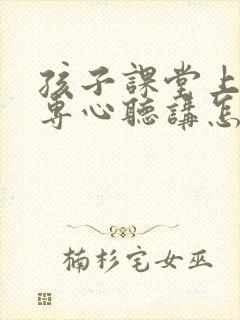 孩子課堂上
專心聽講怎
楠杉宅女巫